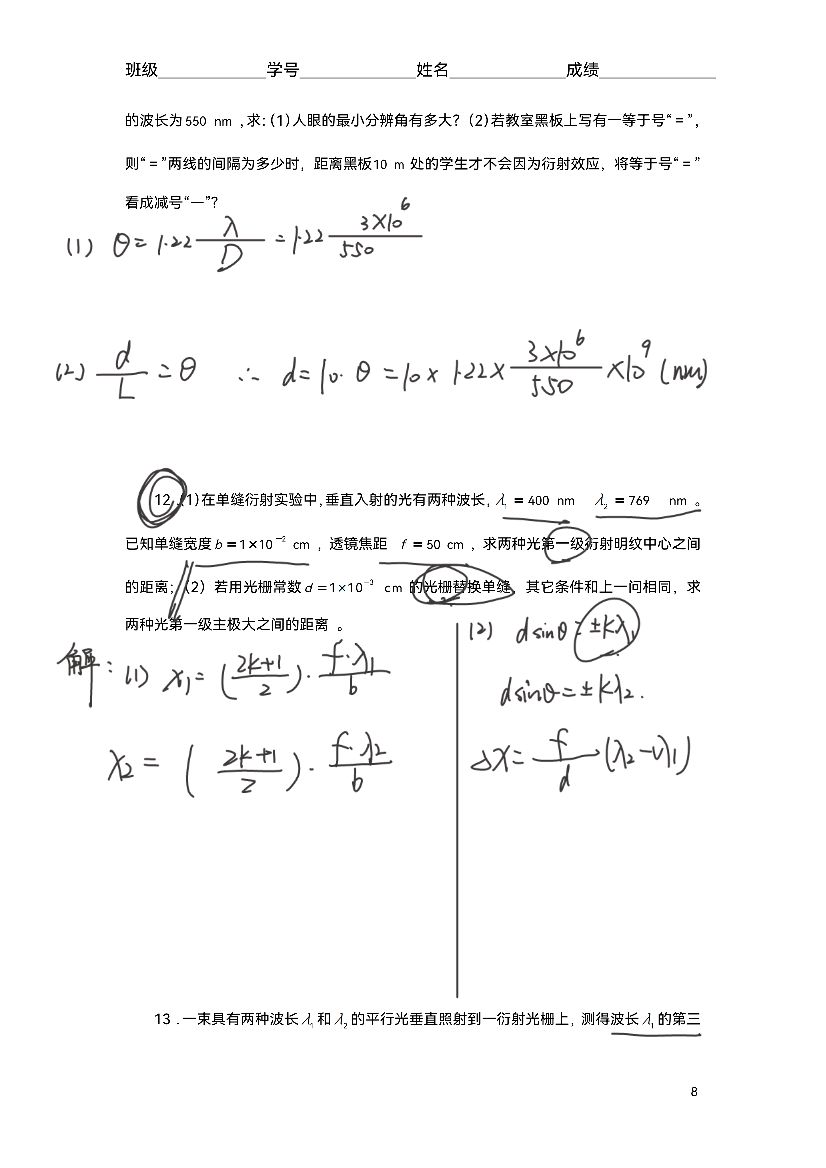 班级 学号 姓名 成绩
的波长为 550 nm ,求:(1)人眼的最小分辨角有多大?(2)若教室黑板上写有一等于号“=”,
则“=”两线的间隔为多少时,距离黑板10 m 处的学生才不会因为衍射效应,将等于号“=”
看成减号“—”?
(1) θ = 1.22 λ/D = 1.22 3×10^6/550
(2) d/L = θ ∴ d = 10·θ = 10 × 1.22 × 3×10^6/550 ×10^9 (nm)
12 .(1)在单缝衍射实验中,垂直入射的光有两种波长, λ₁ = 400 nm λ₂ = 769 nm 。
已知单缝宽度 b = 1×10⁻² cm ,透镜焦距 f = 50 cm ,求两种光第一级衍射明纹中心之间
的距离;(2)若用光栅常数 d = 1×10⁻³ cm 的光栅替换单缝,其它条件和上一问相同,求
两种光第一级主极大之间的距离 。
解:(1) x₁ = (2k+1/2)· f·λ₁/b
x₂ = (2k+1/2)· f·λ₂/b
(2) d sinθ = ±kλ₁
d sinθ = ±kλ₂.
Δx = f/d (λ₂-λ₁)
13 .一束具有两种波长 λ₁ 和 λ₂ 的平行光垂直照射到一衍射光栅上,测得波长 λ₁ 的第三
8